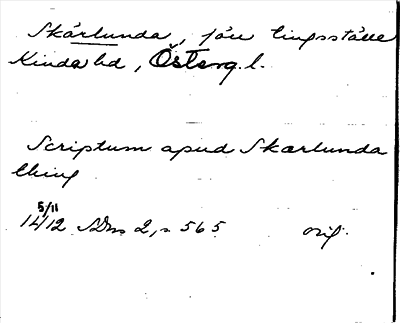 Skärlunda, förr tingsställe
Kinda hd, Österg. l.
Scriptum apud Skærlunda
thing
5/11
1412 SDns 2, s 565 orig.